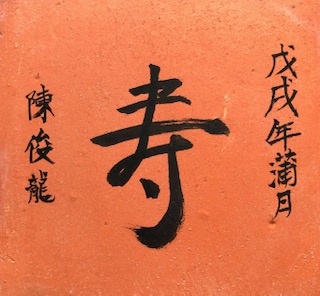 戊戌年蒲月
寿
陳俊龍